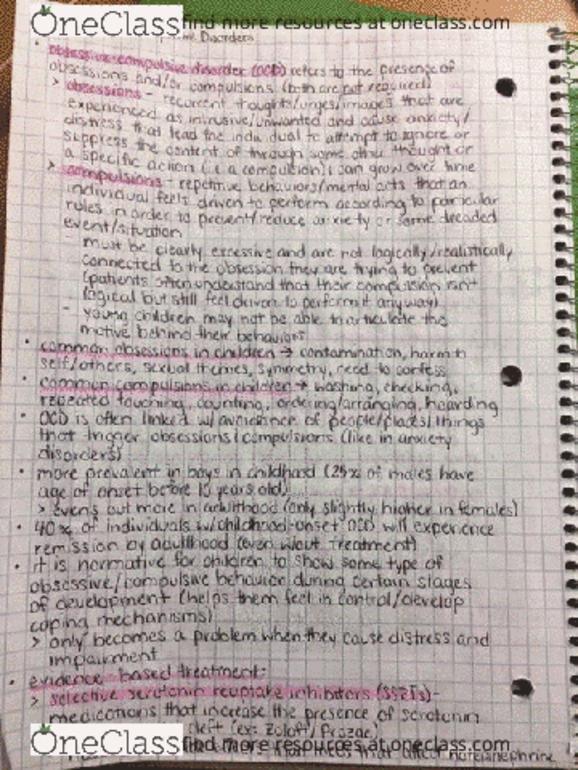 OneClass find more resources at oneclass.com
Disorders
• obsessive-compulsive disorder (OCD) refers to the presence of
obsessions and/or compulsions (both are not required)
> obsessions - recurrent thoughts/urges/images that are
experienced as intrusive/unwanted and cause anxiety/
distress that lead the individual to attempt to ignore or
suppress the content of through some other thought or
a specific action (i.e a compulsion); can grow over time
> compulsions - repetitive behaviors/mental acts that an
individual feels driven to perform according to particular
rules in order to prevent/reduce anxiety or some dreaded
event/situation
- must be clearly excessive and are not logically/realistically
connected to the obsession they are trying to prevent
(patients often understand that their compulsion isn't
logical but still feel driven to perform it anyway)
- young children may not be able to articulate the
motive behind their behaviors
• common obsessions in children → contamination, harm to
self/others, sexual themes, symmetry, need to confess
• common compulsions in children → washing, checking,
repeated touching, counting, ordering/arranging, hoarding
• OCD is often linked w/ avoidance of people/places/things
that trigger obsessions/compulsions (like in anxiety
disorders)
• more prevalent in boys in childhood (25% of males have
age of onset before 10 years old)
> evens out more in adulthood (only slightly higher in females)
• 40% of individuals w/ childhood-onset OCD will experience
remission by adulthood (even w/out treatment)
• it is normative for children to show some type of
obsessive/compulsive behavior during certain stages
of development (helps them feel in control/develop
coping mechanisms)
> only becomes a problem when they cause distress and
impairment
• evidence-based treatment:
> selective serotonin reuptake inhibitors (SSRIs) -
medications that increase the presence of serotonin
cleft (ex: Zoloft/Prozac)
OneClass find more resources at oneclass.com
that affect norepinephrine